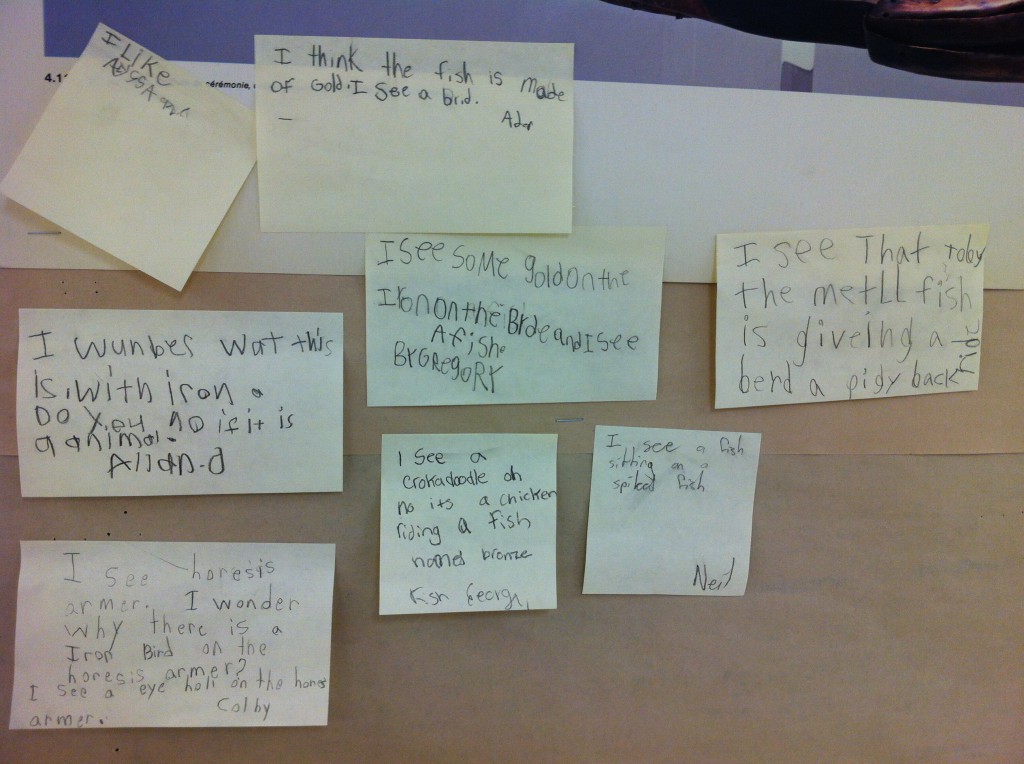 4.1
cérémonie,
I LIKE
I think the fish is made
of Gold. I See a brid.
I SEE SOME goldonthe
IronontheBirdeandISee
Afish.
BYGREGORY
I see That Toby
the metLL fish
is giveing a
berd a pigy back
I wunber wat this
Is, with iron.
Do You no if it is
a animal.
Allan-d
I See a
crokadoodle oh
no its a chicken
riding a Fish
named bronze
I see a fish
sitting on a
spiked fish
Nerf
I see horesis
armer. I wonder
why there is a
Iron Bird on the
horesis armer?
I see a eye holl on the hores
armer.
Colby